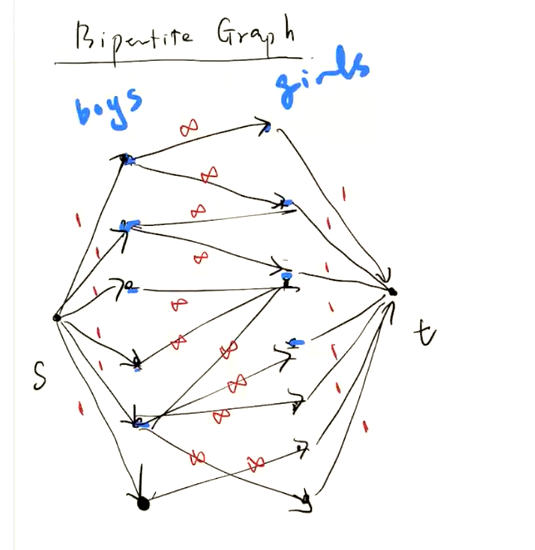 Bipartite Graph
boys girls
∞
∞
1
∞
1 1
1 ∞
1
1 ∞ 1
s t
1 ∞ ∞ 1
1 ∞ 1
1 ∞
1
∞ ∞